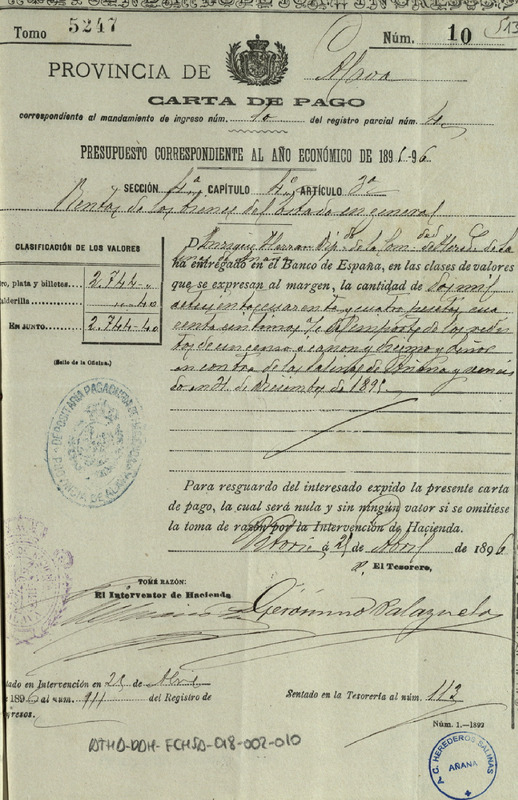 Tomo 5247 Núm. 10 513
PROVINCIA DE Alava
CARTA DE PAGO
correspondiente al mandamiento de ingreso núm. 10 del registro parcial núm. 4
PRESUPUESTO CORRESPONDIENTE AL AÑO ECONÓMICO DE 1895-96
SECCIÓN 4ª CAPÍTULO 4º ARTÍCULO 2º
Rentas de los bienes del Estado en general
CLASIFICACIÓN DE LOS VALORES
ro, plata y billetes 2.744 "
alderilla " 40
EN JUNTO 2.744-40
(Sello de la Oficina.)
D. Enrique Herran de la Com. de Hered. de Sa
ha entregado en el Banco de España, en las clases de valores
que se expresan al margen, la cantidad de Dos mil
setecientas cuarenta y cuatro pesetas cua
renta centimos el importe de los redi
tos de un censo o canon y Diezmo
en contra de las Salinas de Añana y venci
do en 31 de Diciembre de 1895
Para resguardo del interesado expido la presente carta
de pago, la cual será nula y sin ningún valor si se omitiese
la toma de razón por la Intervención de Hacienda.
Vitoria á 21 de Abril de 1896
P. El Tesorero,
TOMÉ RAZÓN:
El Interventor de Hacienda
Gerónimo Palazuelo
ntado en Intervención en 21 de Abril
e 1896 al núm. 111 del Registro de
ngresos.
Sentado en la Tesorería al núm. 113
Núm. 1.—1892
ATHA-DAH-FCHSA-018-002-010
DEPOSITARIA PAGADURIA DE HACIENDA
PROVINCIA DE ALAVA
A.C. HEREDEROS SALINAS
AÑANA